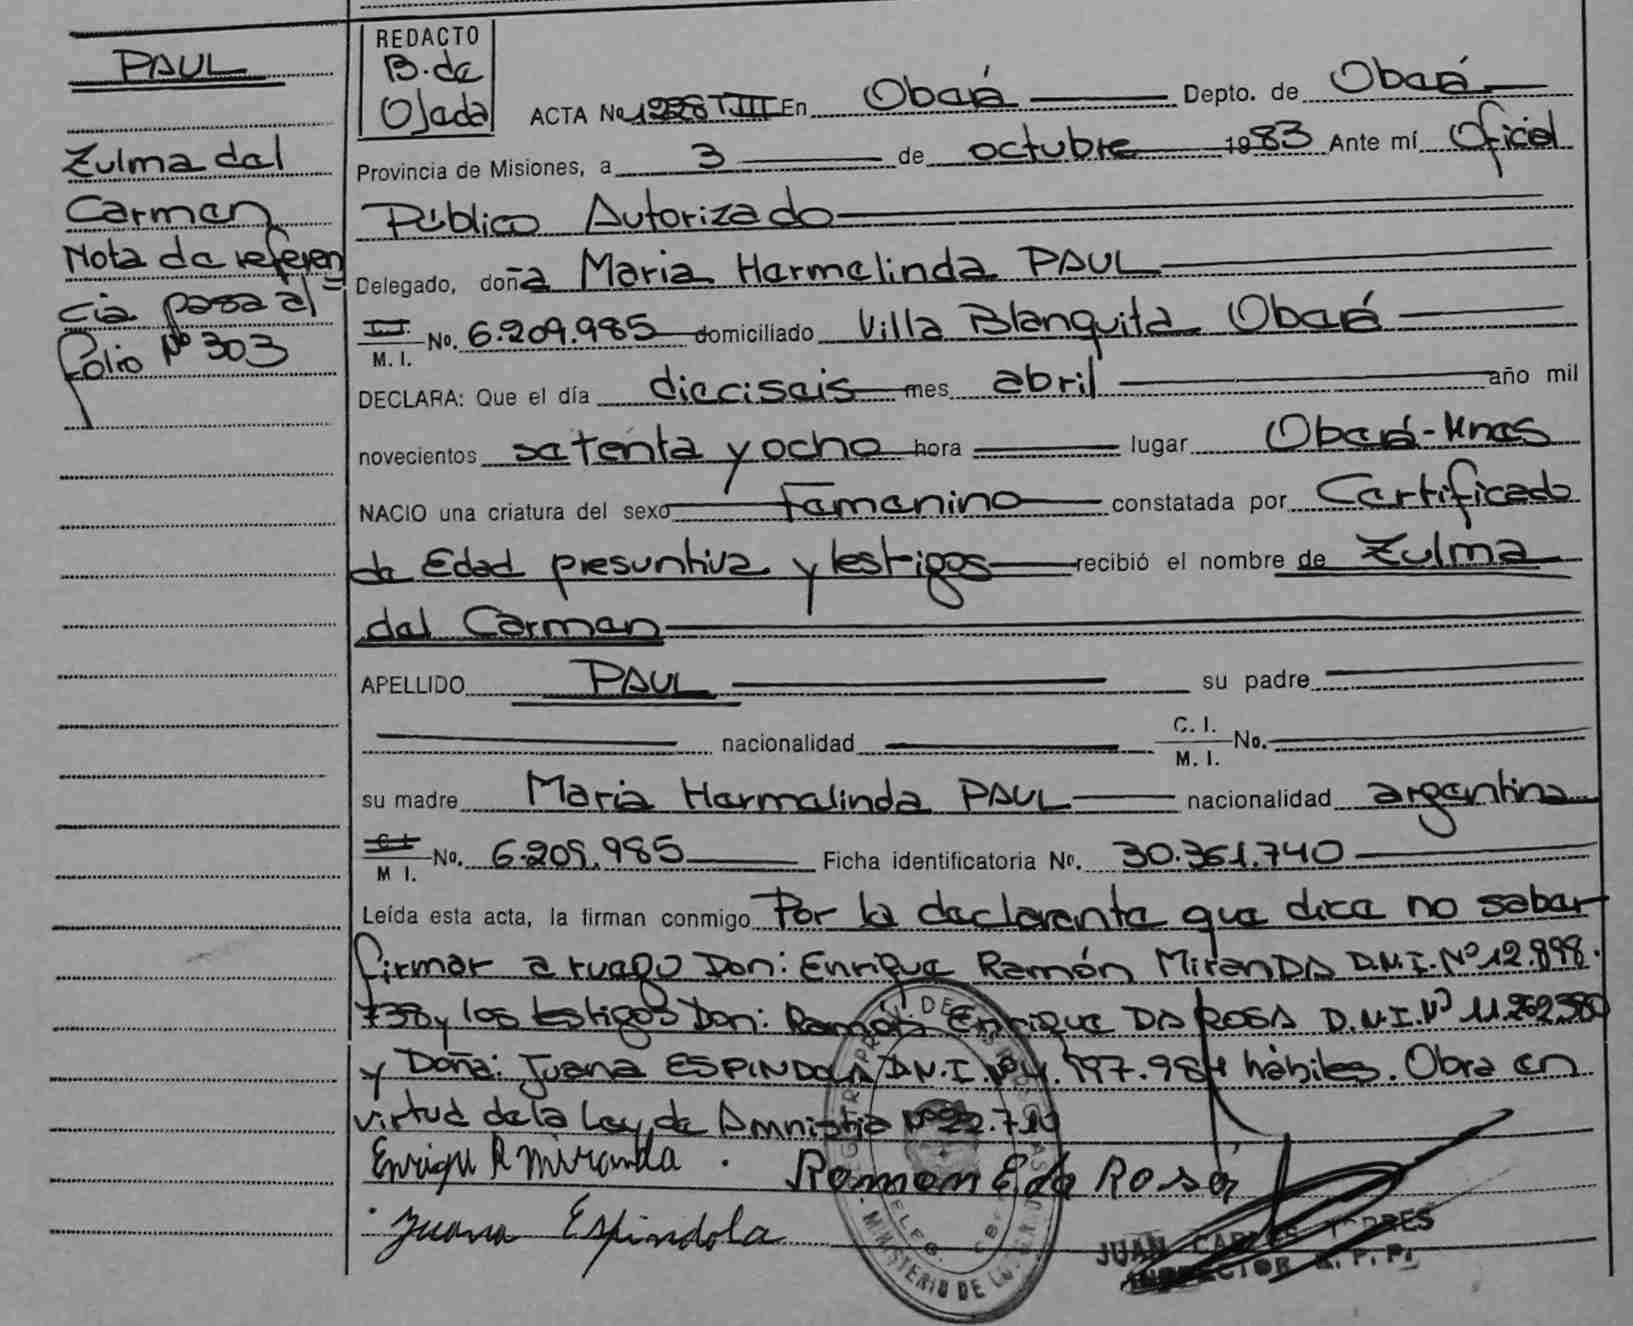 PAUL
Zulma del
Carmen
Nota de referen
cia pasa al
folio Nº 303
REDACTO
B. de
Ojeda
ACTA No. TIII En Oberá Depto. de Oberá
Provincia de Misiones, a 3 de octubre 1983 Ante mí Oficial
Público Autorizado
Delegado, doña Maria Hermelinda PAUL
M. I. No. 6.209.985 domiciliado Villa Blanquita Oberá
DECLARA: Que el día dieciseis mes abril año mil
novecientos setenta y ocho hora lugar Oberá-Mnes
NACIO una criatura del sexo Femenino constatada por Certificado
de Edad presuntiva y testigos recibió el nombre de Zulma
del Carmen
APELLIDO PAUL su padre
nacionalidad C. I. M. I. No.
su madre Maria Hermelinda PAUL nacionalidad argentina
C I M I. No. 6.209.985 Ficha identificatoria Nº. 30.361.740
Leída esta acta, la firman conmigo Por la declarante que dice no saber
firmar a ruego Don: Enrique Ramón MIRANDA D.N.I. Nº 12.898.
738 y los testigos Don: Ramón Enrique DA ROSA D.N.I. Nº 11.262.580
y Doña: Juana ESPINDOLA D.N.I. Nº hábiles. Obra en
virtud de la Ley de Amnistia Nº 22.710
Enrique R Miranda. Ramon E da Rosa
Juana Espindola
JUAN CARLOS TORRES
INSPECTOR R. P. P.
MINISTERIO DE